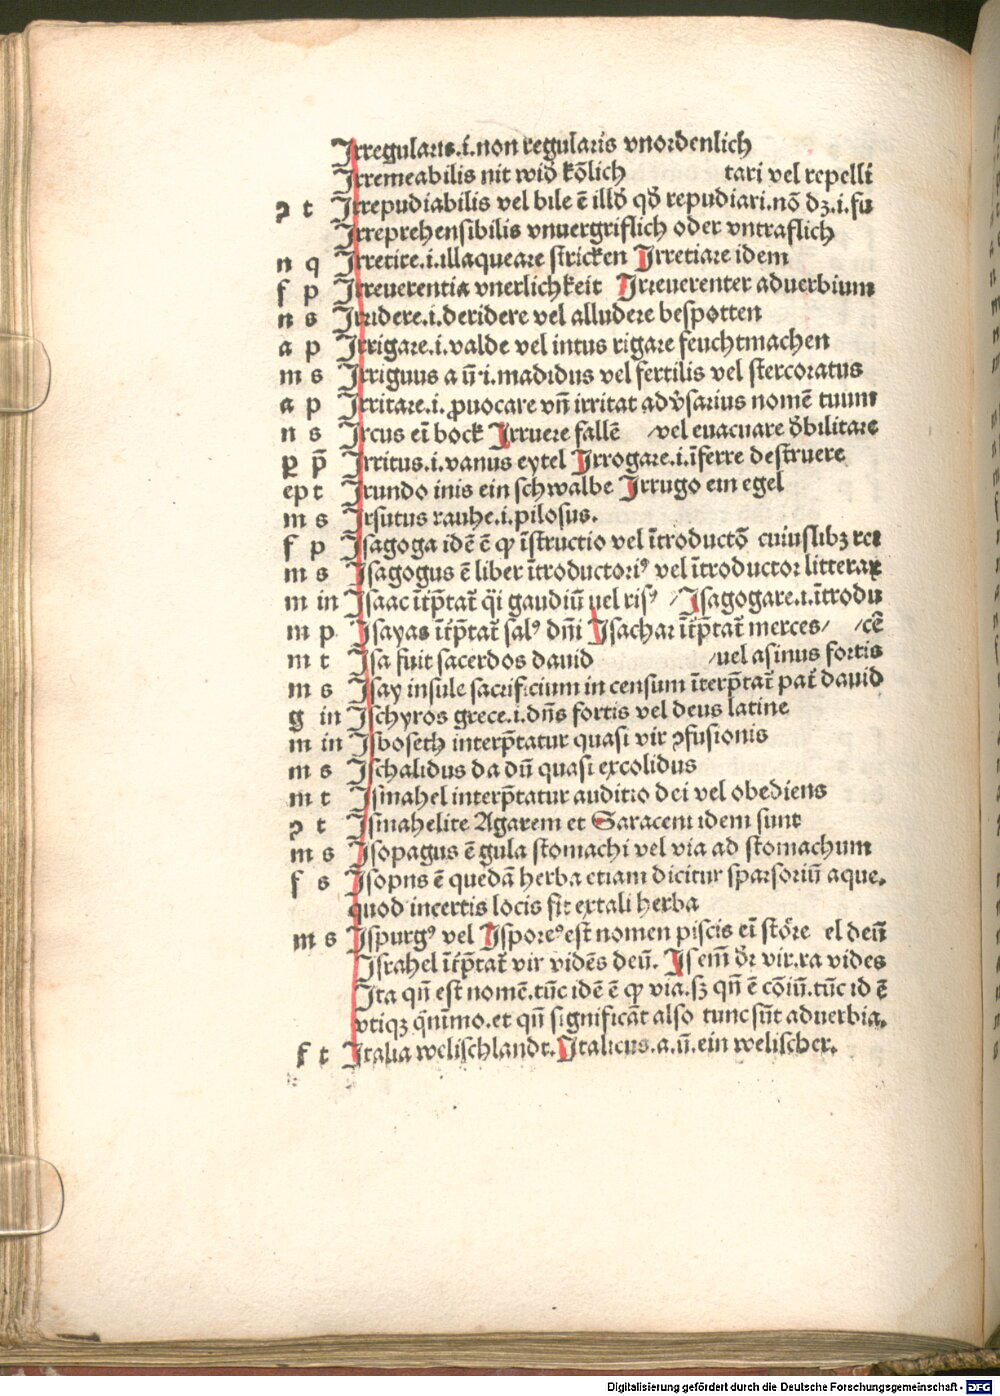 Irregularis.i.non regularis vnordenlich
Irremeabilis nit wid̄ kōlich tari vel repelli
ꝯ t Irrepudiabilis vel bile ē illd̄ qd̄ repudiari.nō dꝫ.i.fu
Irreprehensibilis vnuergriflich oder vntraflich
n q Irretire.i.illaqueare stricken Irretiare idem
f p Irreuerentia vnerlichkeit Irreuerenter aduerbium
n s Irridere.i.deridere vel alludere bespotten
a p Irrigare.i.valde vel intus rigare feuchtmachen
m s Irriguus a ū.i.madidus vel fertilis vel stercoratus
a p Irritare.i.ꝓuocare vn̄ irritat adv̄sarius nomē tuum
n s Ircus eī bock Irruere fallē /vel euacuare d̄bilitare
ꝑ p̄ Irritus.i.vanus eytel Irrogare.i.īferre destruere
ep t Irundo inis ein schwalbe Irrugo ein egel
m s Irsutus rauhe.i.pilosus.
f p Isagoga idē ē ꝙ īstructio vel ītroductō cuiuslibꝫ rei
m s Isagogus ē liber ītroductoriꝰ vel ītroductor litteraꝝ
m in Isaac īt̄p̄tat̄ q̄i gaudiū uel risꝰ / Isagogare.i.ītrodu
m p Isayas īt̄p̄tat̄ salꝰ dn̄i Isachar īt̄p̄tat̄ merces/ /cē
m t Isa fuit sacerdos dauid /uel asinus fortis
m s Isay insule sacrificium in censum īterp̄tat̄ pat̄ dauid
g in Ischyros grece.i.dn̄s fortis vel deus latine
m in Isboseth interp̄tatur quasi vir ꝯfusionis
m s Ischalidus da dū quasi excolidus
m t Ismahel interp̄tatur auditio dei vel obediens
ꝯ t Ismahelite Agarem et Saraceni idem sunt
m s Isopagus ē gula stomachi vel via ad stomachum
f s Isopus ē quedā herba etiam dicitur sparsoriū aque.
quod incertis locis fit extali herba
m s Ispurgꝰ vel Isporeꝰ est nomen piscis eī störe el deū
Israhel īt̄p̄tat̄ vir vidēs deū. Is enī d̄r vir.ra vides
Ita qn̄ est nomē.tūc idē ē ꝙ via.sꝫ qn̄ ē cōiū.tūc id ē
vtiqꝫ q̄nimo.et qn̄ significāt also tunc sūt aduerbia.
f t Italia welischlandt. Italicus.a.ū.ein welischer.
Digitalisierung gefördert durch die Deutsche Forschungsgemeinschaft - DFG